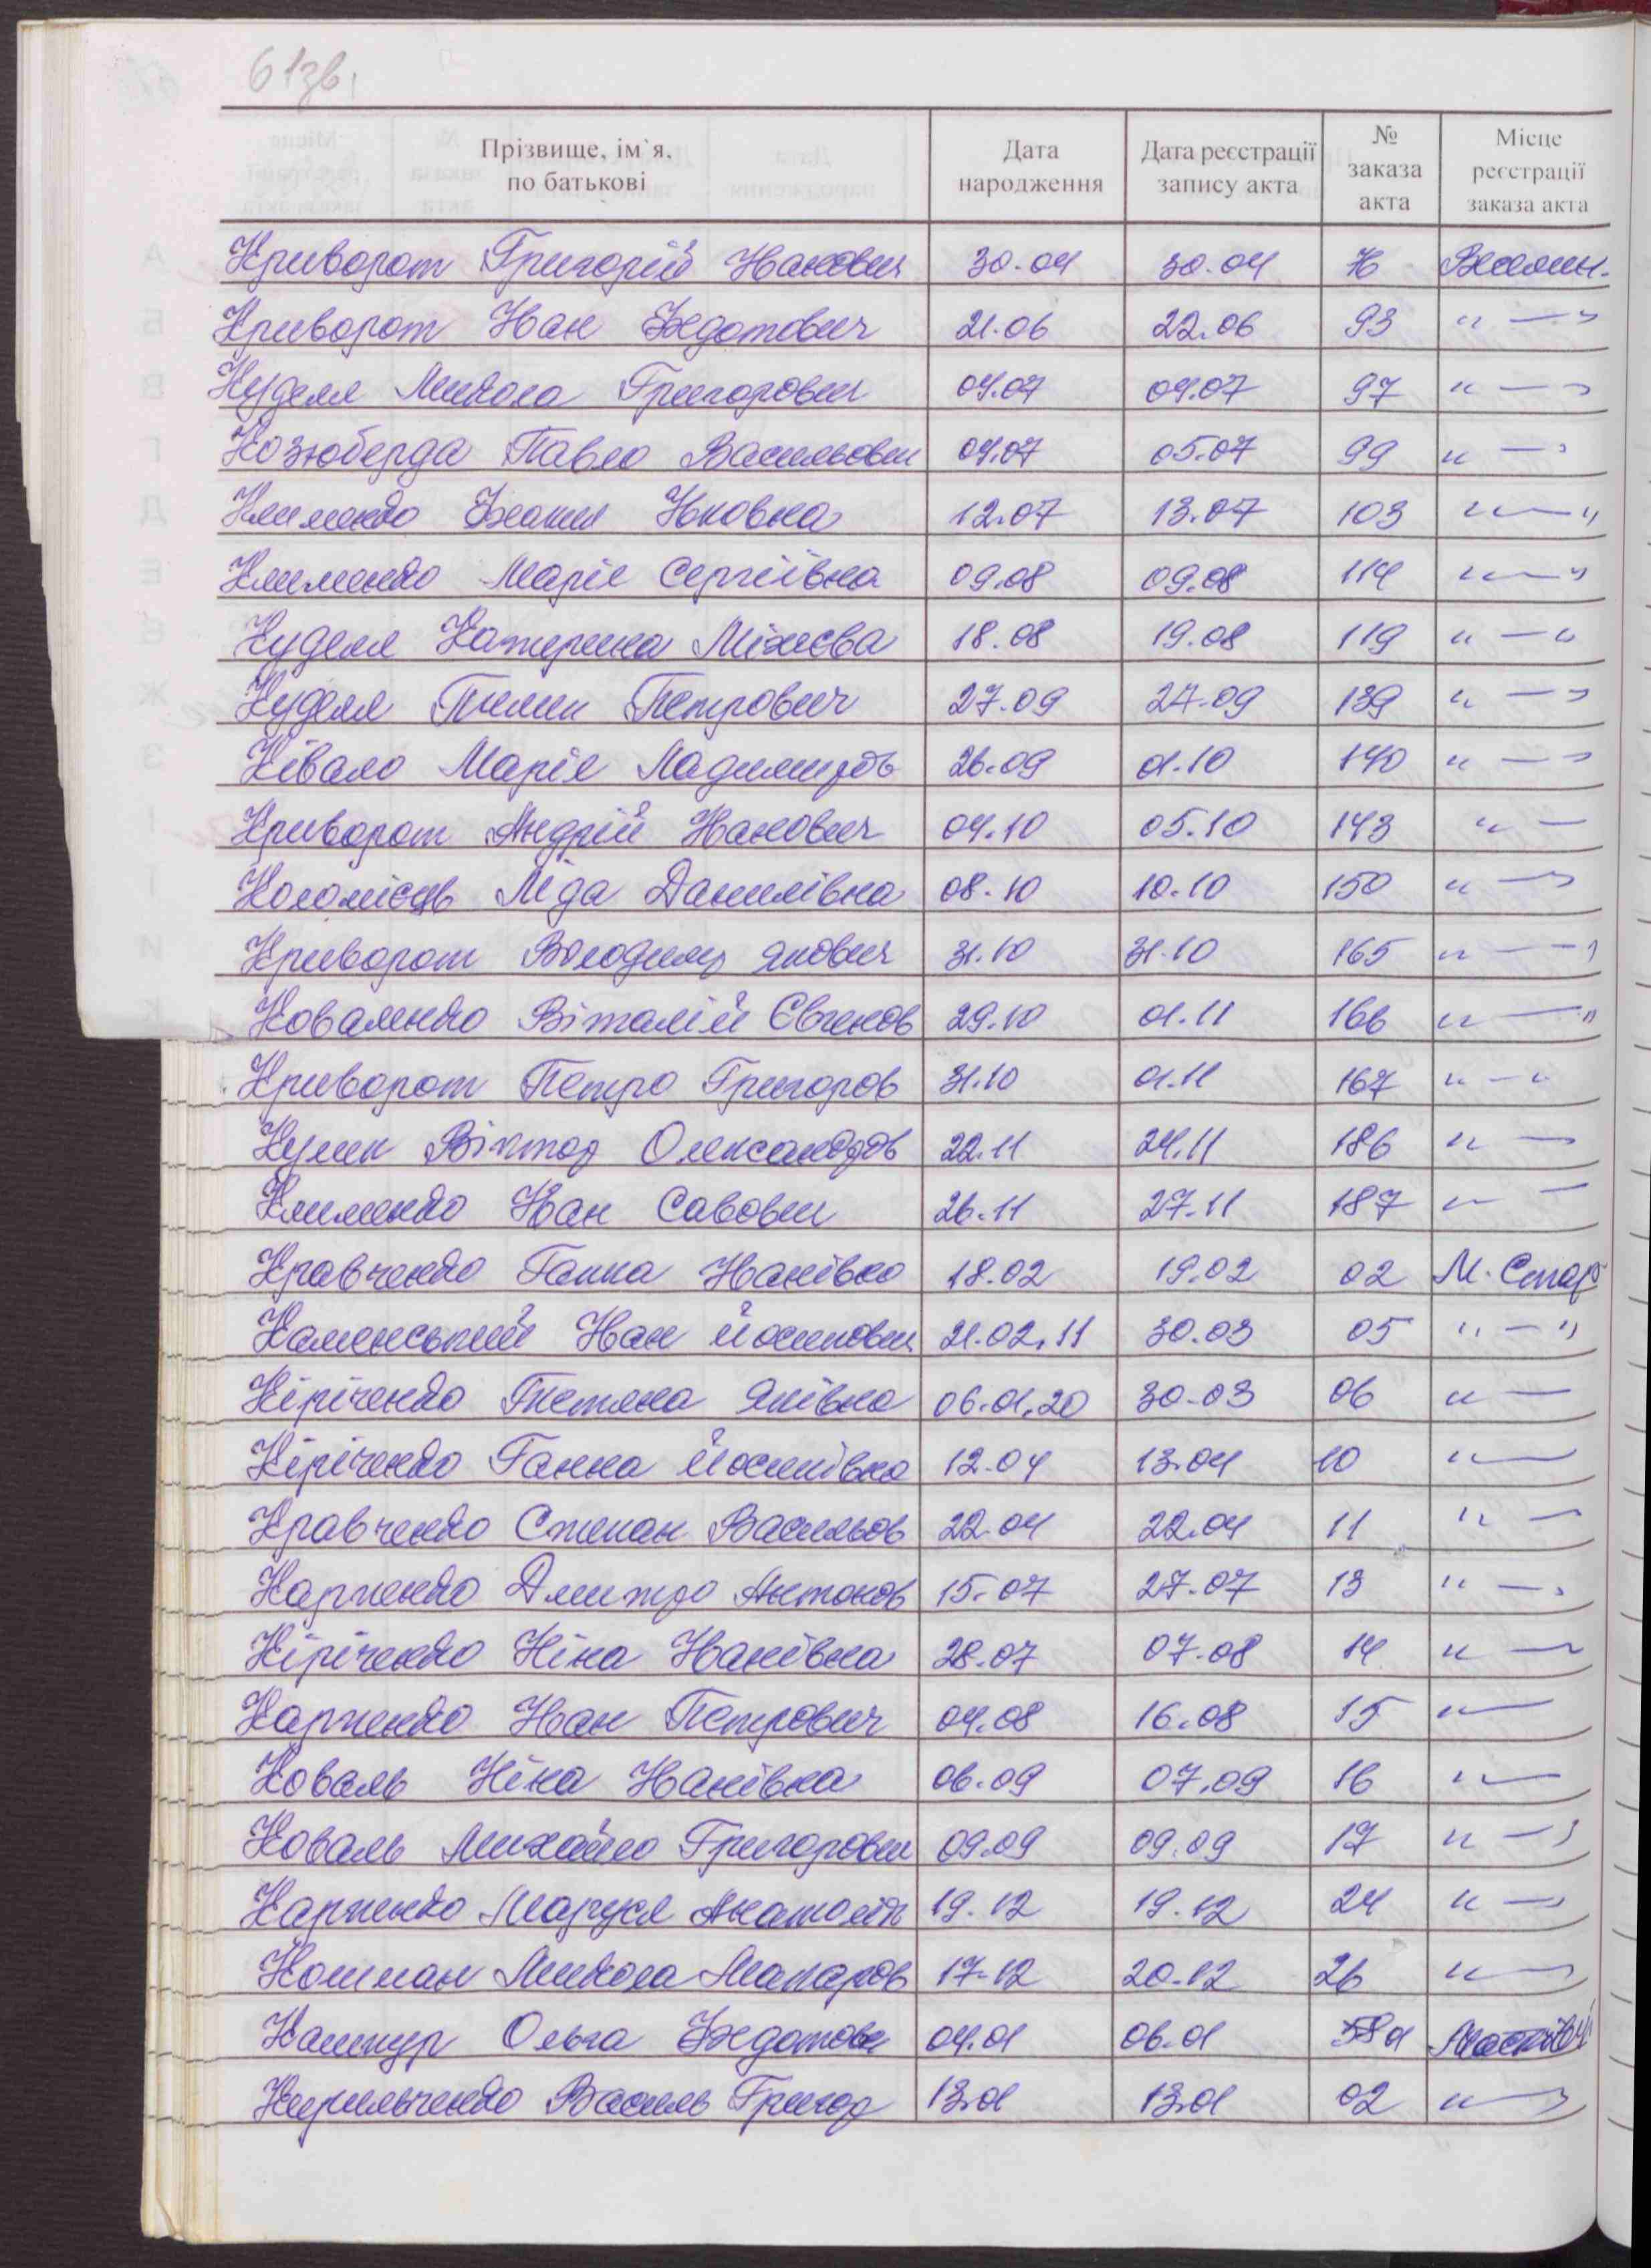 61зв.
Прізвище, ім`я, по батькові Дата народження Дата реєстрації запису акта № заказа акта Місце реєстрації заказа акта
Криворот Григорій Іванович 30.04 30.04
Криворот Іван Федотович 21.06 22.06 93 " — "
Куделя Микола Григорович 04.07 04.07 97 " — "
Козюберда Павло Васильович 04.07 05.07 99 " — "
Клименко 12.07 13.07 103 " — "
Клименко Марія Сергіївна 09.08 09.08 114 " — "
Куделя Катерина Міхеєва 18.08 19.08 119 " — "
Куделя Пилип Петрович 27.09 27.09 139 " — "
Ківало Марія 26.09 01.10 140 " — "
Криворот Андрій Іванович 04.10 05.10 143 " —
Коломієць Ліда Данилівна 08.10 10.10 150 " — "
Криворот Володимир Якович 31.10 31.10 165 " — "
Коваленко Віталій Євгенов 29.10 01.11 166 " — "
Криворот Петро Григоров 31.10 01.11 167 " — "
Кулик Віктор Олександров 22.11 24.11 186 " —
Клименко Іван Савович 26.11 27.11 187 " —
Кравченко Ганна Іванівна 18.02 19.02 02 М. Стар
Каменський Іван Йосипович 21.02.11 30.03 05 " — "
Кіріченко Тетяна Яківна 06.01.20 30.03 06 " —
Кіріченко Ганна Йосипівна 12.04 13.04 10 " —
Кравченко Степан Васильов 22.04 22.04 11 " —
Карпенко Дмитро Антонов 15.07 27.07 13 " — "
Кіріченко Ніна Іванівна 28.07 07.08 14 " —
Карпенко Іван Петрович 04.08 16.08 15 " —
Коваль Ніна Іванівна 06.09 07.09 16 " —
Коваль Михайло Григорович 09.09 09.09 17 " — "
Карпенко Маруся Анатолів 19.12 19.12 24 " — "
Кошман Микола Макаров 17.12 20.12 26 " — "
Кашпур Ольга Федотов 04.01 06.01 01
Кирильченко Василь Григор 13.01 13.01 02 " — "